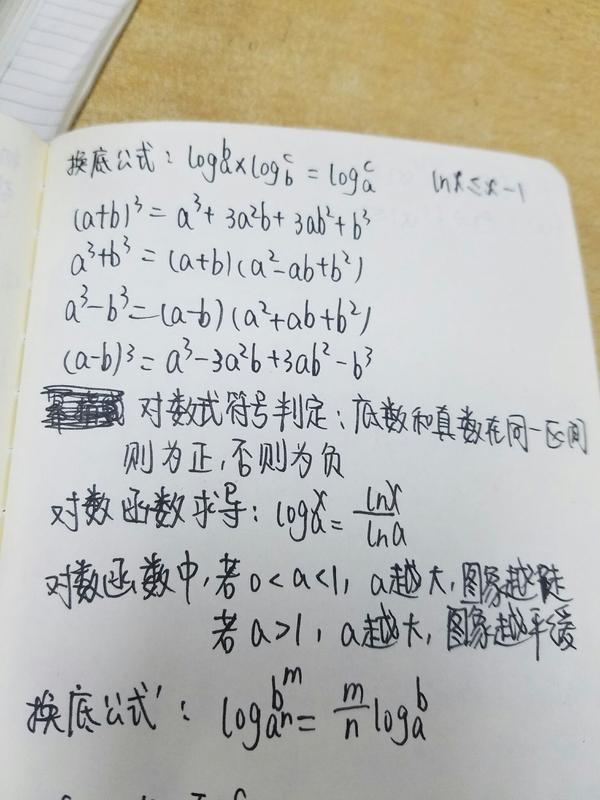 换底公式：log_a^b × log_b^c = log_a^c    lnx ≤ x-1
(a+b)³ = a³+3a²b+3ab²+b³
a³+b³ = (a+b)(a²-ab+b²)
a³-b³ = (a-b)(a²+ab+b²)
(a-b)³ = a³-3a²b+3ab²-b³
对数式符号判定：底数和真数在同一区间
则为正，否则为负
对数函数求导：log_a^x = lnx/lna
对数函数中，若 0<a<1，a越大，图象越陡
若 a>1，a越大，图象越平缓
换底公式'：log_{a^n}^{b^m} = m/n log_a^b